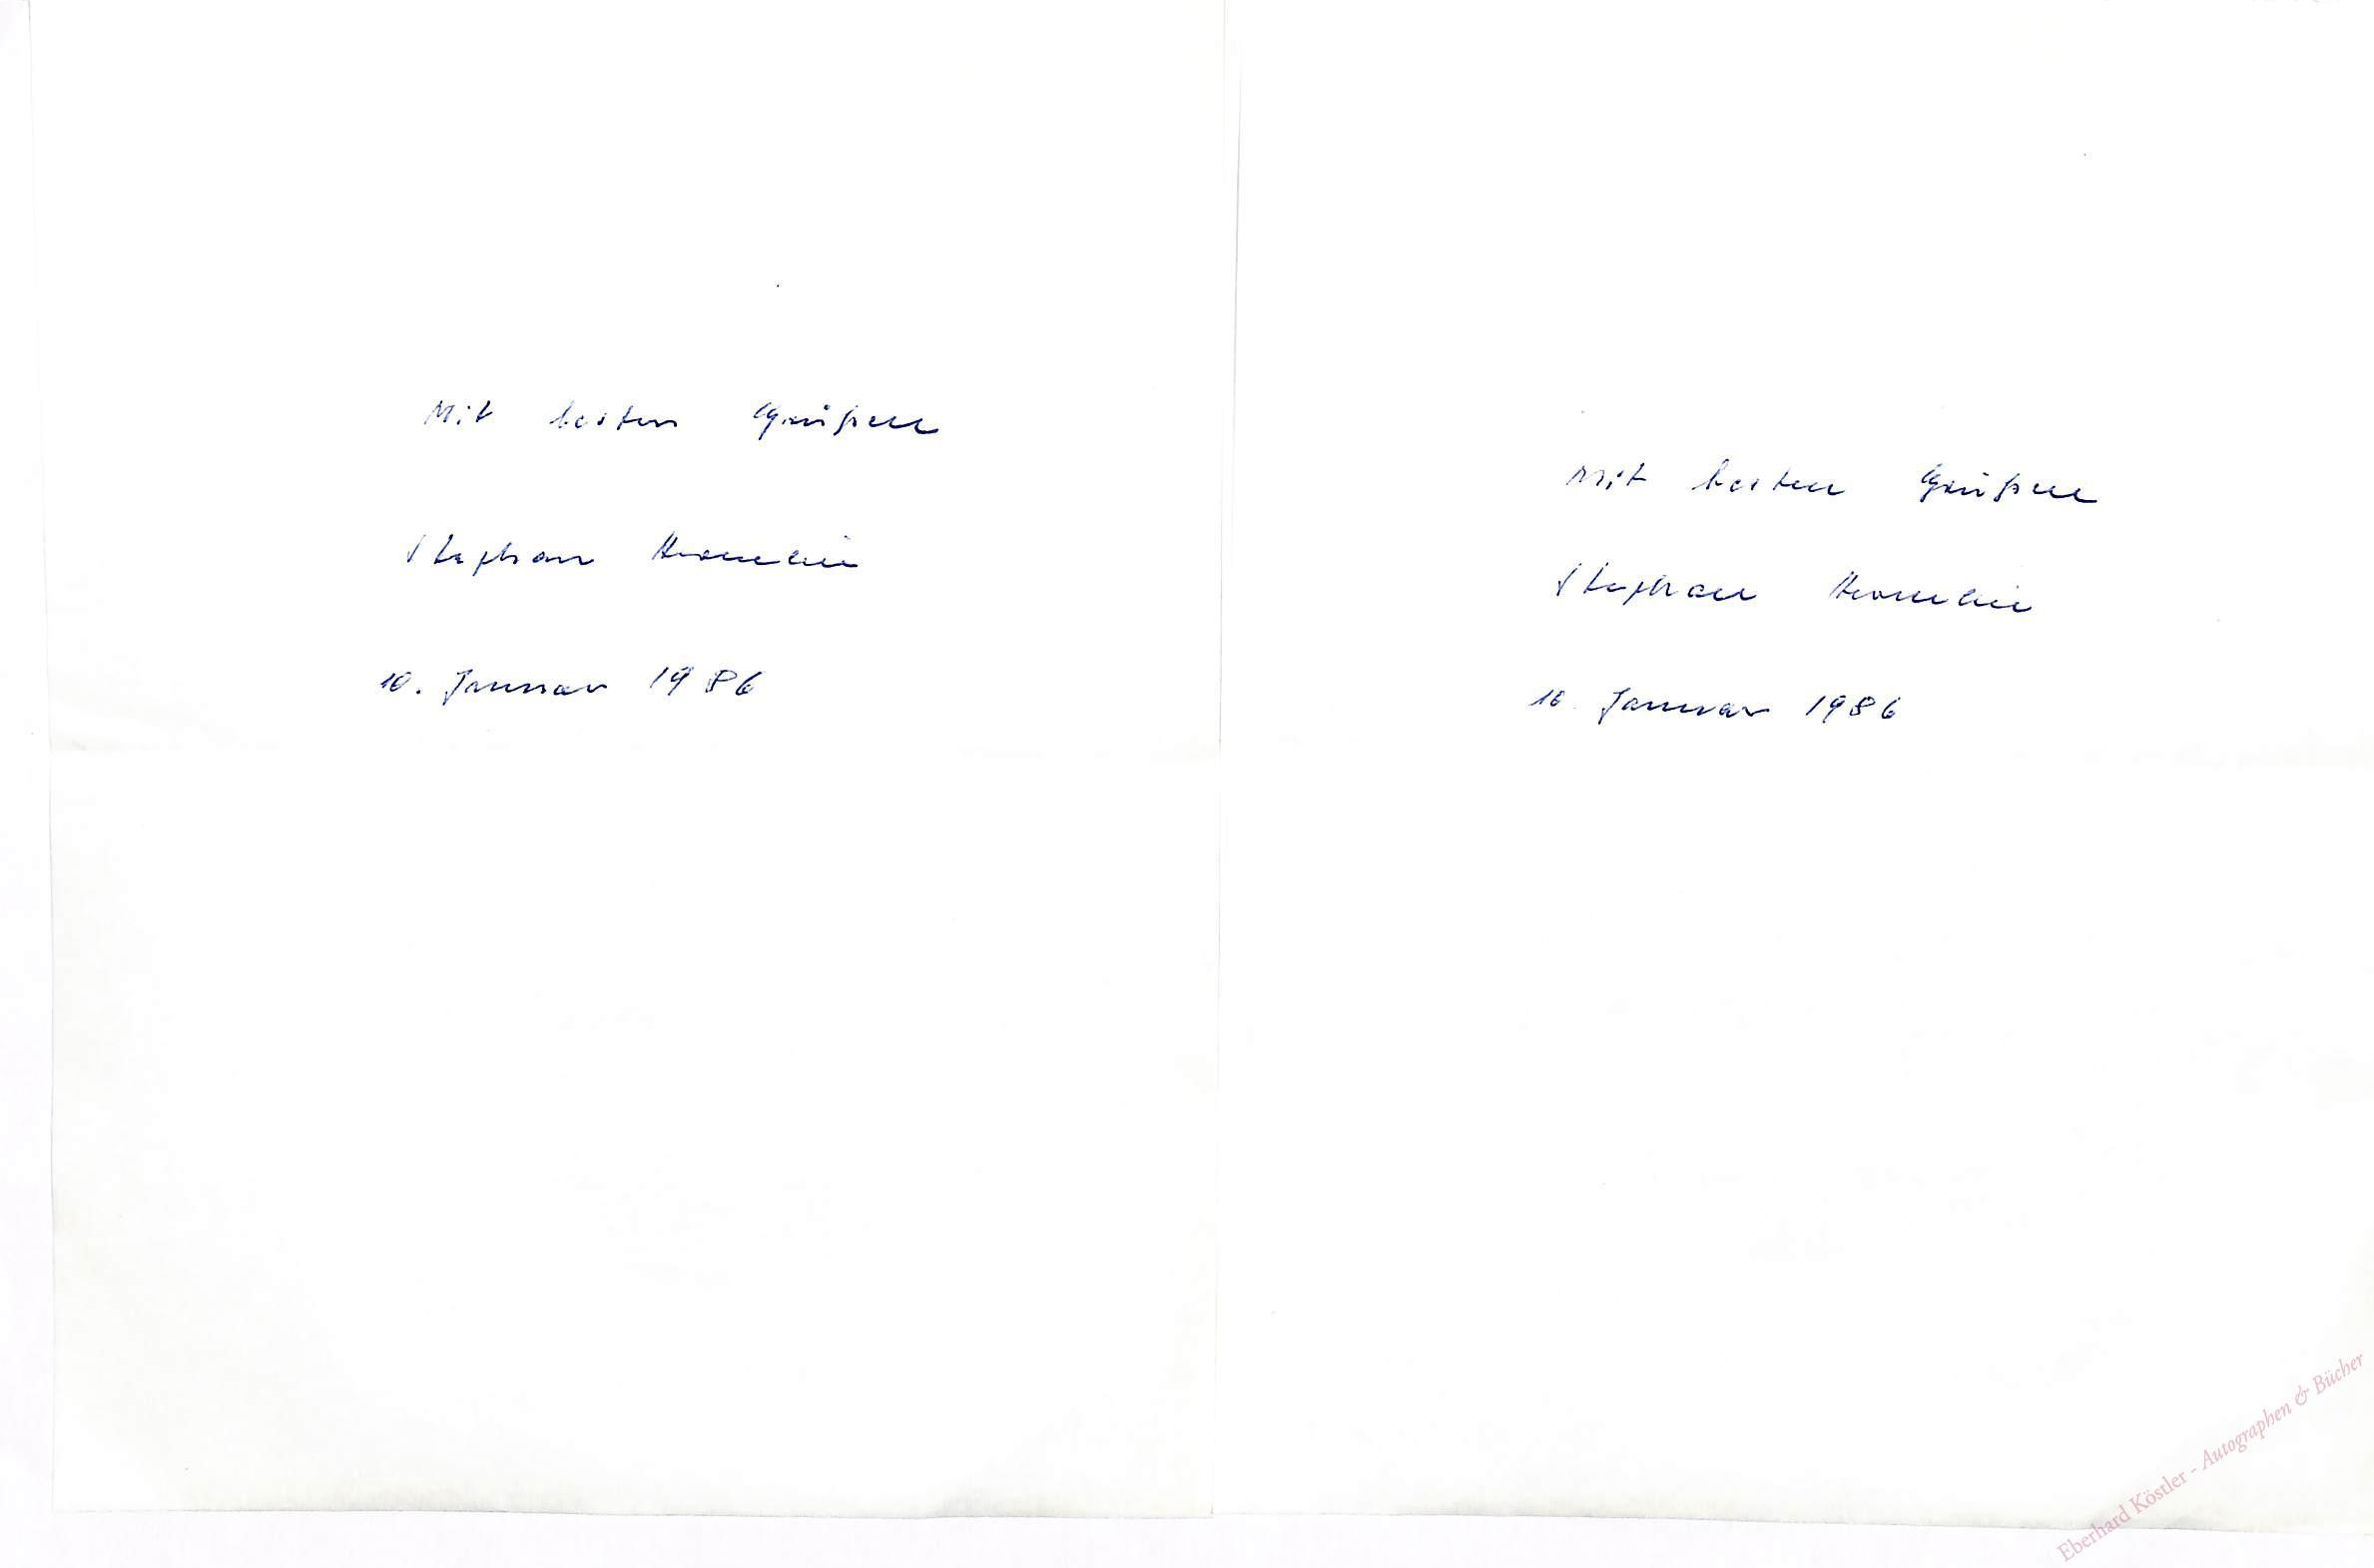 Mit besten Grüßen
Stephan Hermlin
10. Januar 1986
Mit besten Grüßen
Stephan Hermlin
10. Januar 1986
Eberhard Köstler - Autographen & Bücher